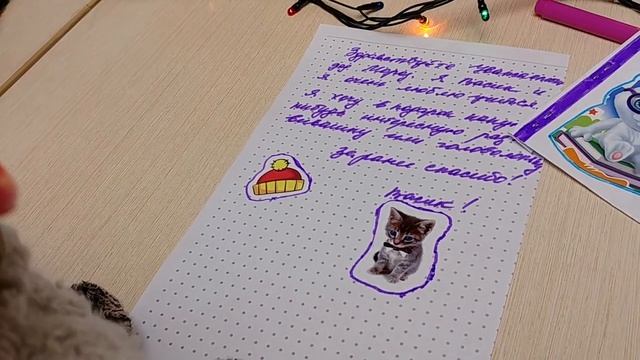 Здравствуйте уважаемый
дед Мороз. Я Васик и
я очень люблю учиться.
Я хочу в подарок какую
нибудь интересную раз
вивашку или головоломку
Заранее спасибо!
Васик!